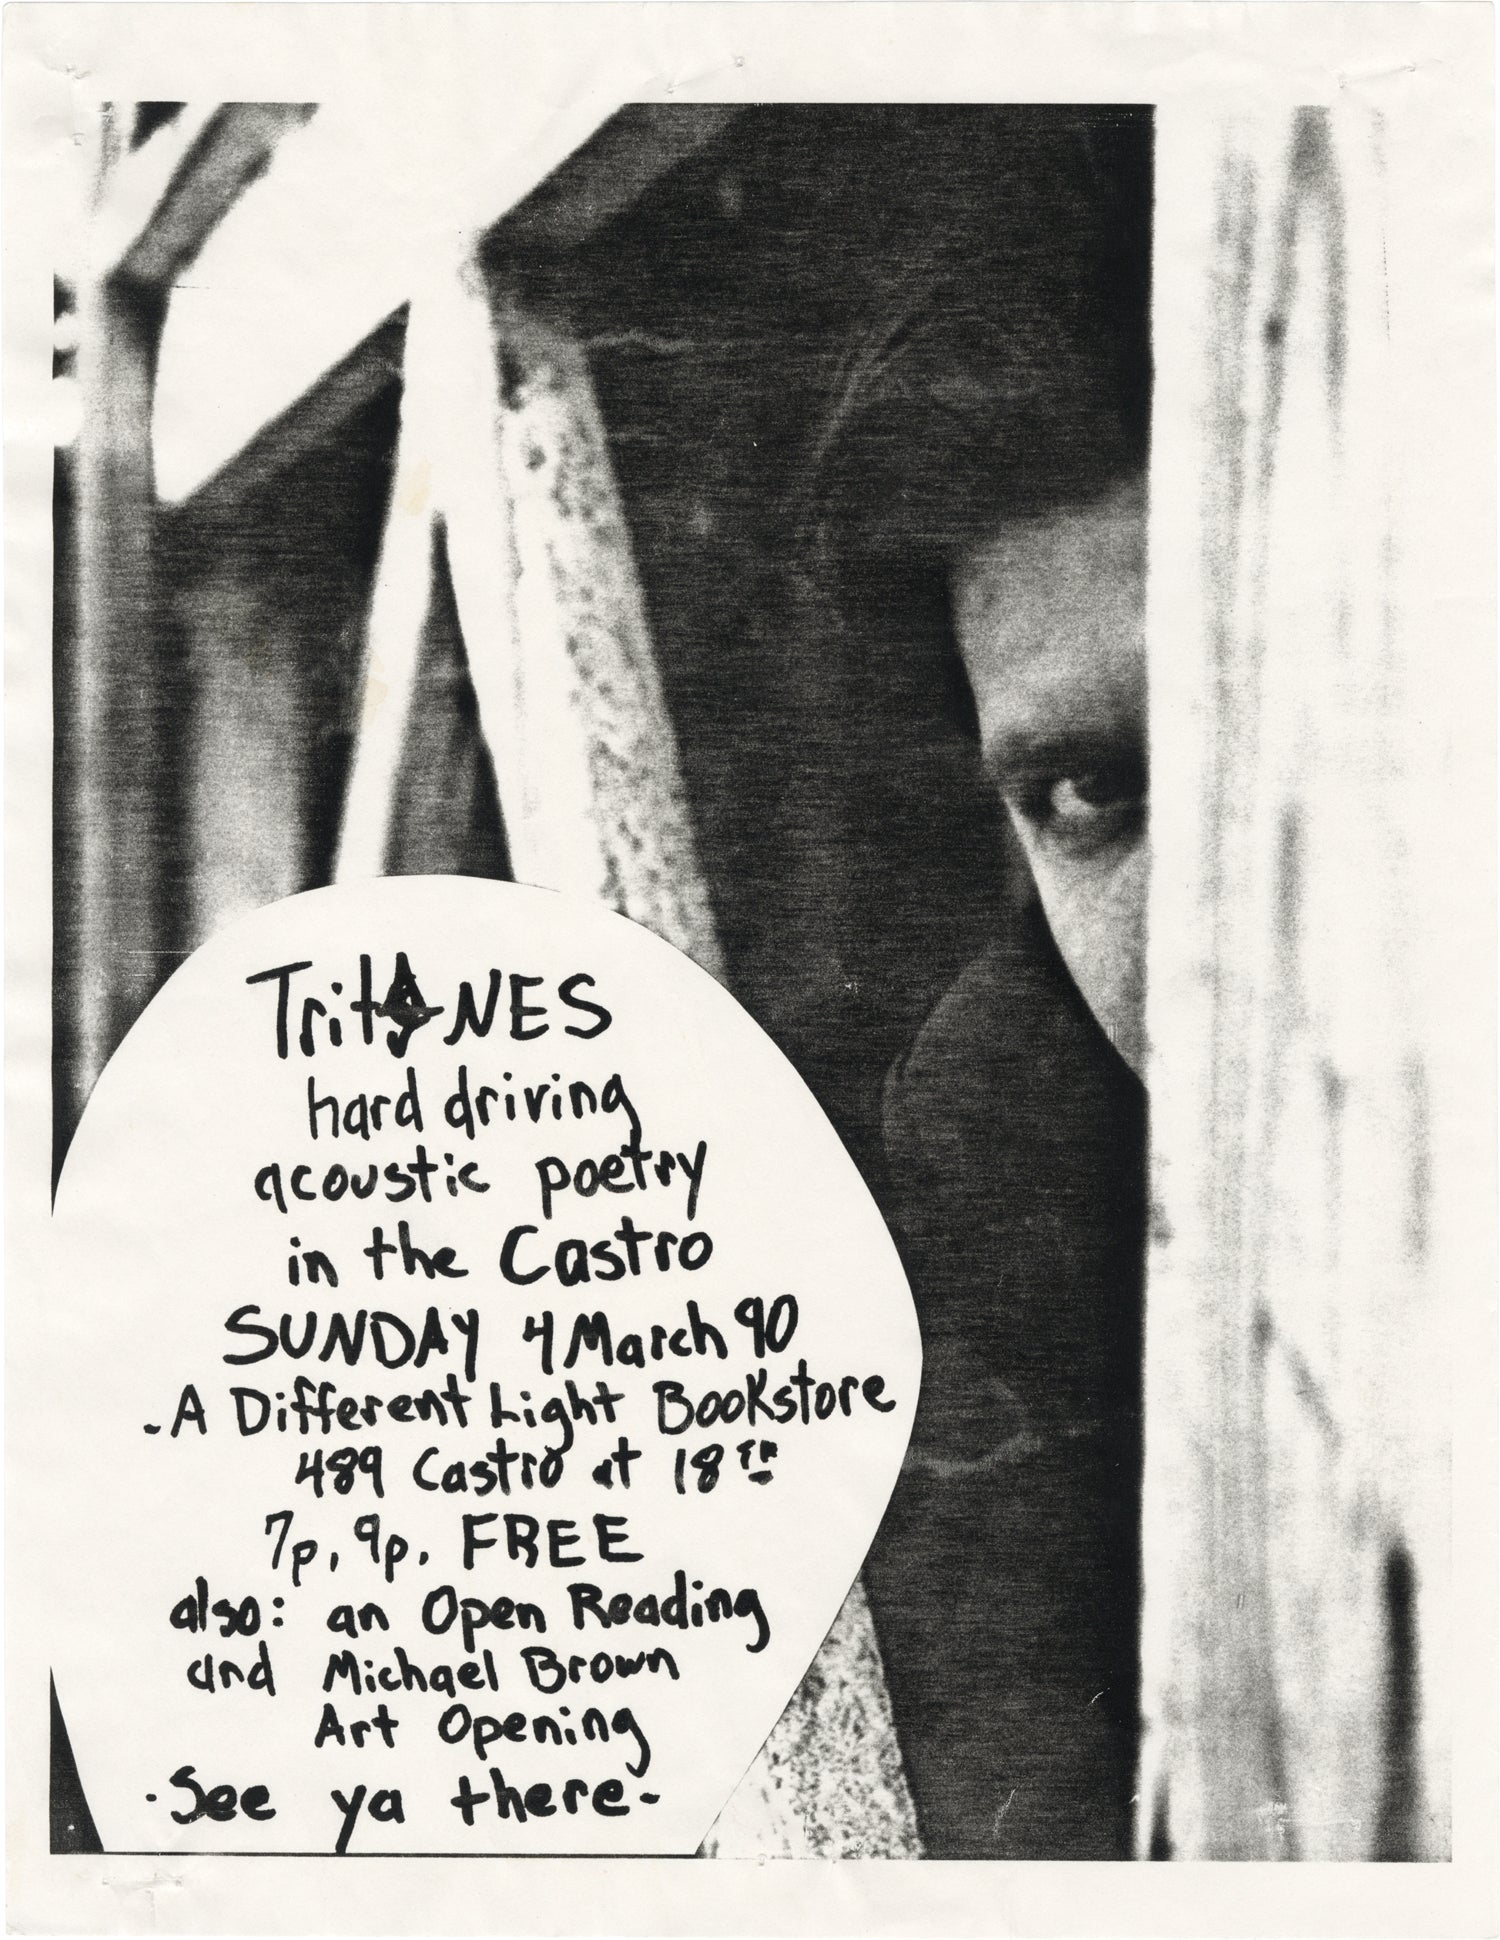 TritoNES
hard driving
acoustic poetry
in the Castro
SUNDAY 4 March 90
-A Different Light Bookstore
489 Castro at 18TH
7p, 9p. FREE
also: an Open Reading
and Michael Brown
Art Opening
-See ya there-